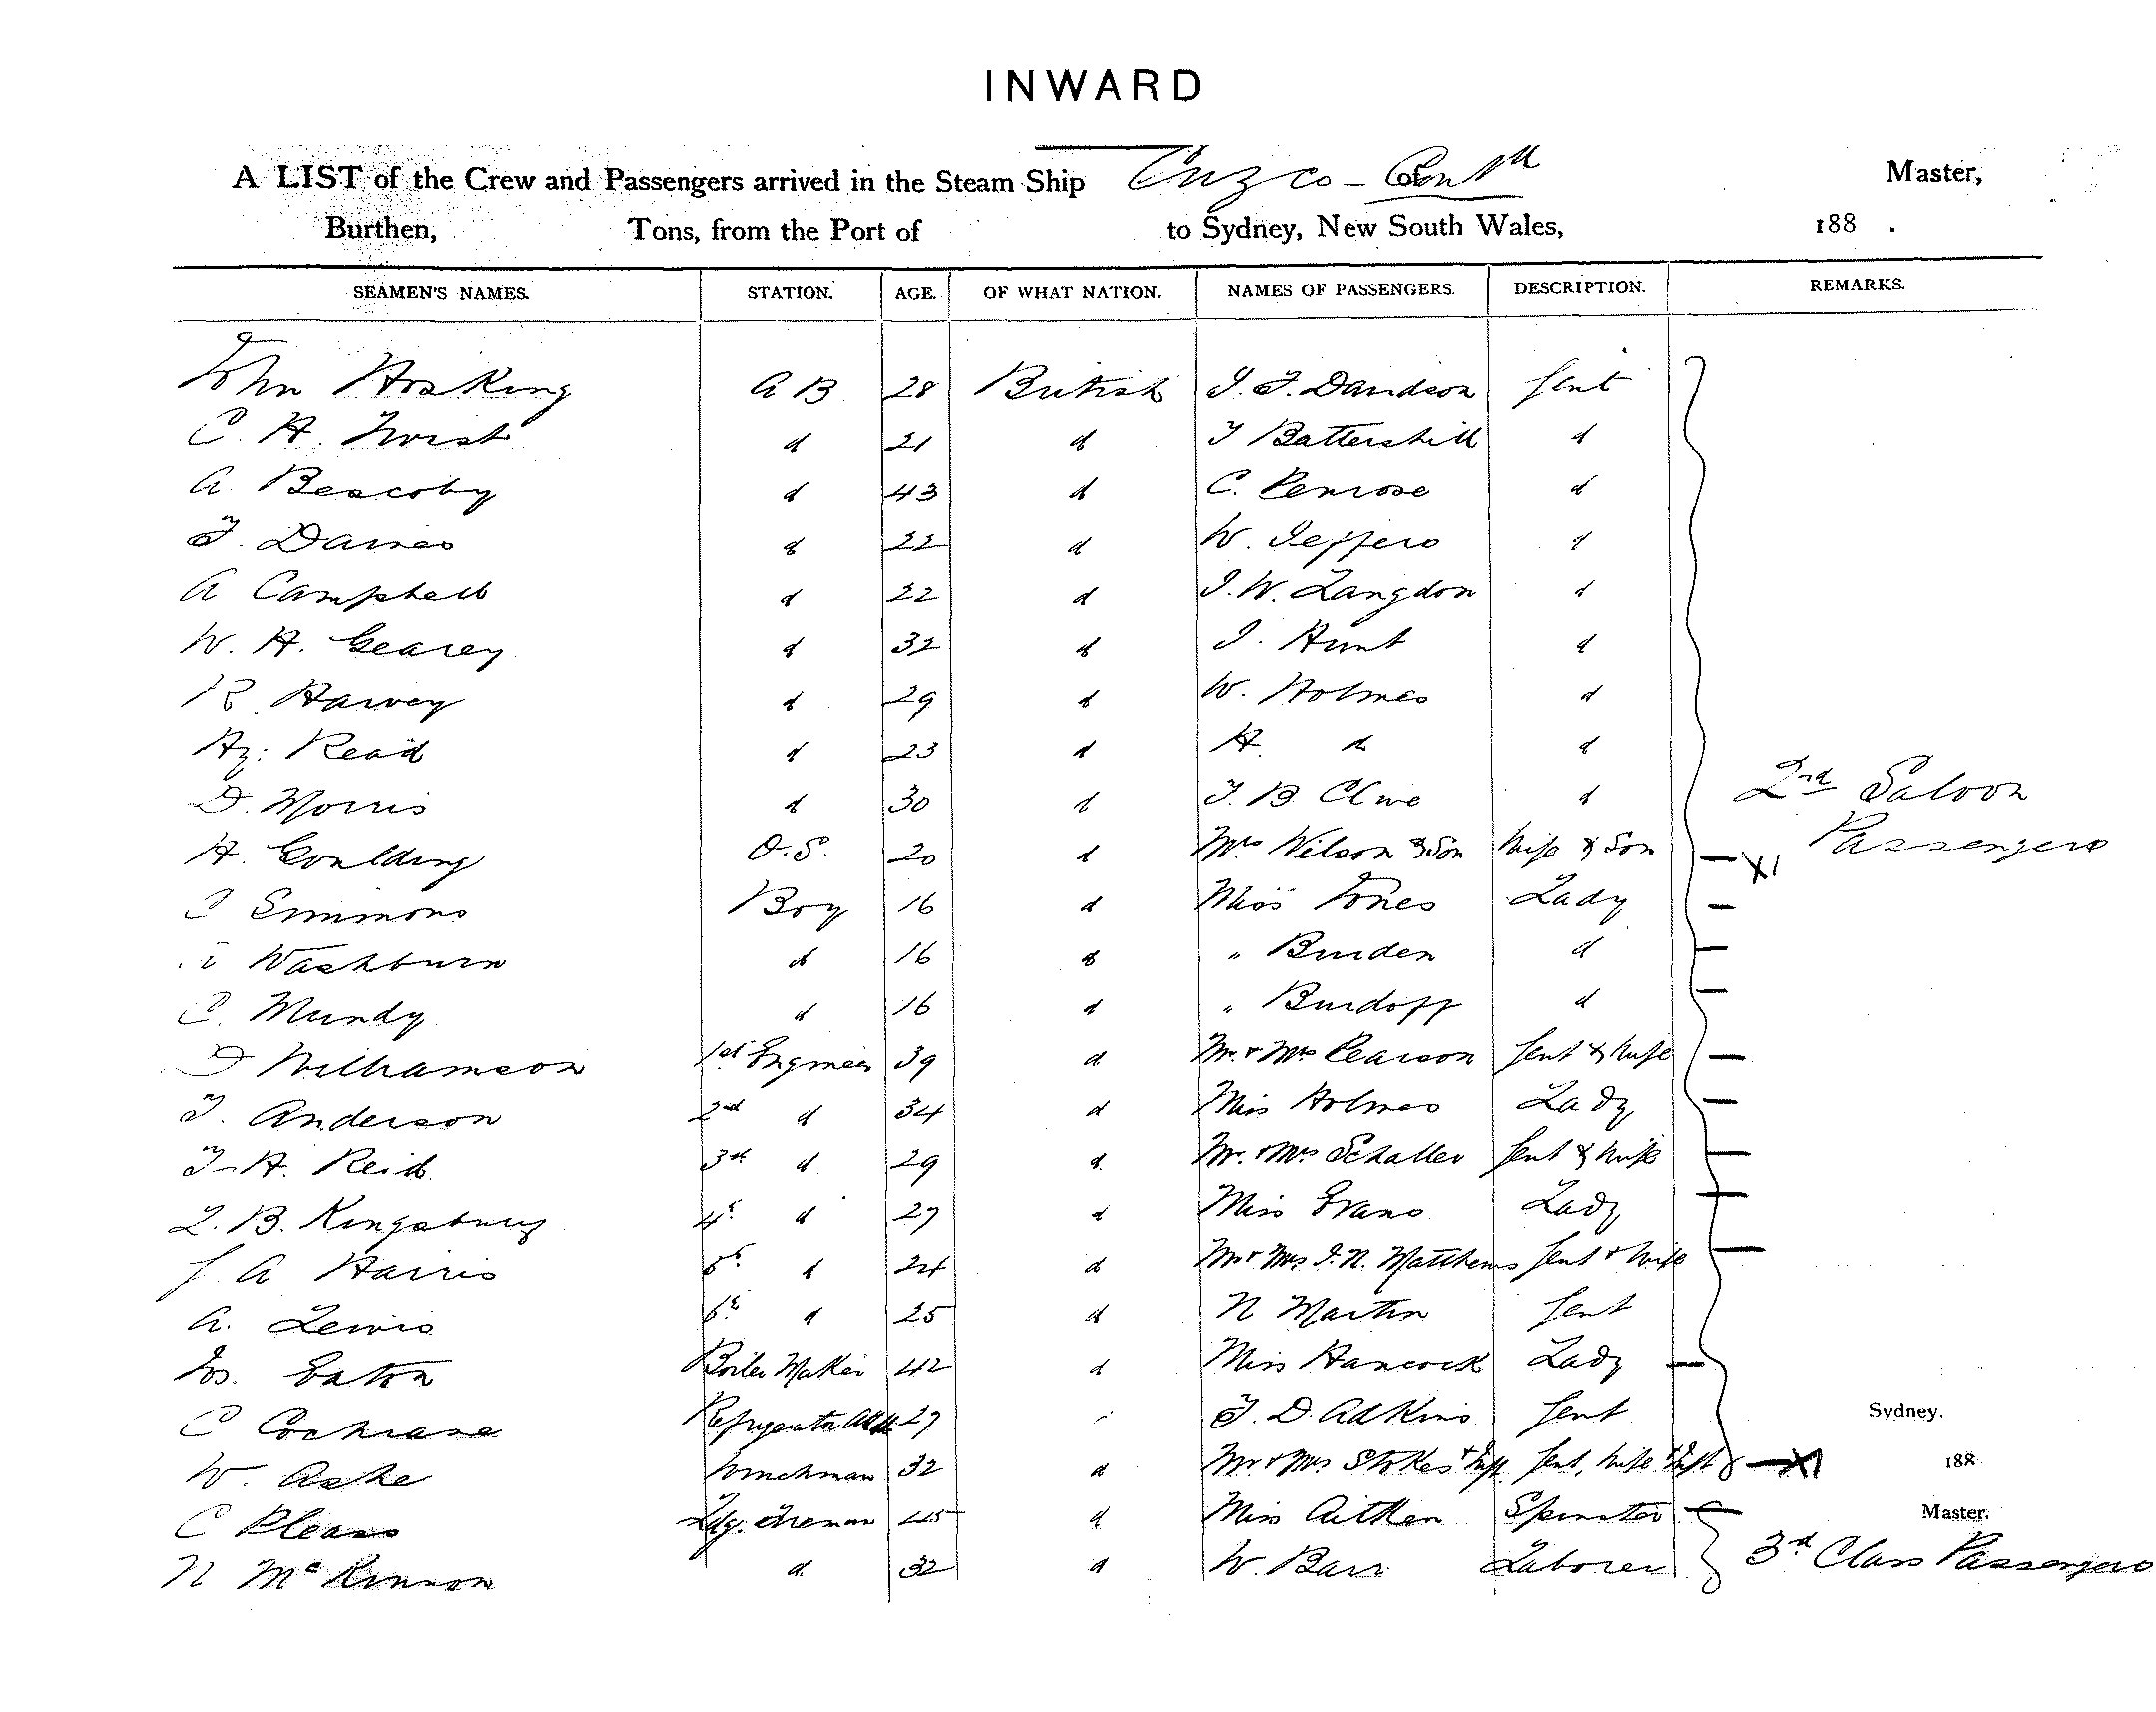 INWARD
A LIST of the Crew and Passengers arrived in the Steam Ship Cuzco - Con^td of Master,
Burthen, Tons, from the Port of to Sydney, New South Wales, 188 .
SEAMEN'S NAMES. STATION. AGE. OF WHAT NATION. NAMES OF PASSENGERS. DESCRIPTION. REMARKS.
John Hosking A B 28 British J. F. Davidson Gent
C. H. Twist d 21 d T Battershill d
A. Beacoby d 43 d C. Penrose d
T. Davies d 22 d W. Jeffers d
A Campbell d 22 d J. W. Langdon d
W. H. Gearey d 32 d J. Hunt d
R Harvey d 29 d W. Holmes d
Hy: Read d 23 d H. d d
D. Morris d 30 d T. B. Clive d 2nd Saloon
H. Goulding O.S. 20 d Mrs Wilson & Son Wife & Son Passengers
C Simmons Boy 16 d Miss Jones Lady
Washburn d 16 d " Burden d
C. Mundy d 16 d " Burdoff d
D Williamson 1st Engineer 39 d Mr & Mrs Pearson Gent & Wife
T. Anderson 2nd d 34 d Miss Holmes Lady
T. H. Reid 3rd d 29 d Mr. & Mrs Schaller Gent & Wife
L. B. Kingsbury 4th d 27 d Miss Evans Lady
J A Harris 5th d 24 d Mr & Mrs J. N. Matthews Gent & Wife
A. Lewis 6th d 25 d N Martin Gent
Jos. Eaton Boiler Maker 42 d Miss Hancock Lady
C Cochrane Refrigerator 27 T. D. Adkins Gent Sydney.
W. Ashe Winchman 32 d Mr & Mrs Stokes & Inft Gent, Wife & Inft X1 188
C Pleass Ldg. Fireman 45 d Miss Aitken Spinster Master.
N McKinnon d 32 d W. Barr Laborer 3rd Class Passengers